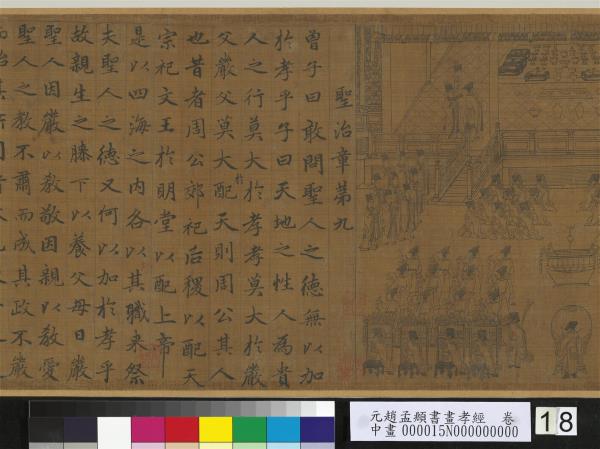 聖治章第九
曾子曰敢問聖人之德無以加
於孝乎子曰天地之性人為貴
人之行莫大於孝孝莫大於嚴
父嚴父莫大於配天則周公其人
也昔者周公郊祀后稷以配天
宗祀文王於明堂以配上帝
是以四海之內各以其職來祭
夫聖人之德又何以加於孝乎
故親生之膝下以養父母日嚴
聖人因嚴以教敬因親以教愛
聖人之教不肅而成其政不嚴
元趙孟頫書畫孝經 卷
中畫000015N000000000
18